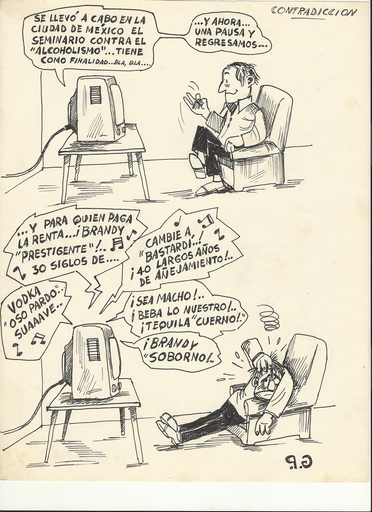 CONTRADICCION
SE LLEVÓ A CABO EN LA
CIUDAD DE MEXICO EL
SEMINARIO CONTRA EL
"ALCOHOLISMO"...TIENE
COMO FINALIDAD..BLA, BLA....
...Y AHORA...
UNA PAUSA Y
REGRESAMOS...
...Y PARA QUIEN PAGA
LA RENTA...¡BRANDY
"PRESTIGENTE"!..
30 SIGLOS DE....
CAMBIE A,
"BASTARDI...!
¡40 LARGOS AÑOS
DE AÑEJAMIENTO!..
VODKA
"OSO PARDO"..
SUAAAVE...
¡SEA MACHO!..
¡BEBA LO NUESTRO!..
¡TEQUILA "CUERNO!"
¡BRANDY
"SOBORNO!".